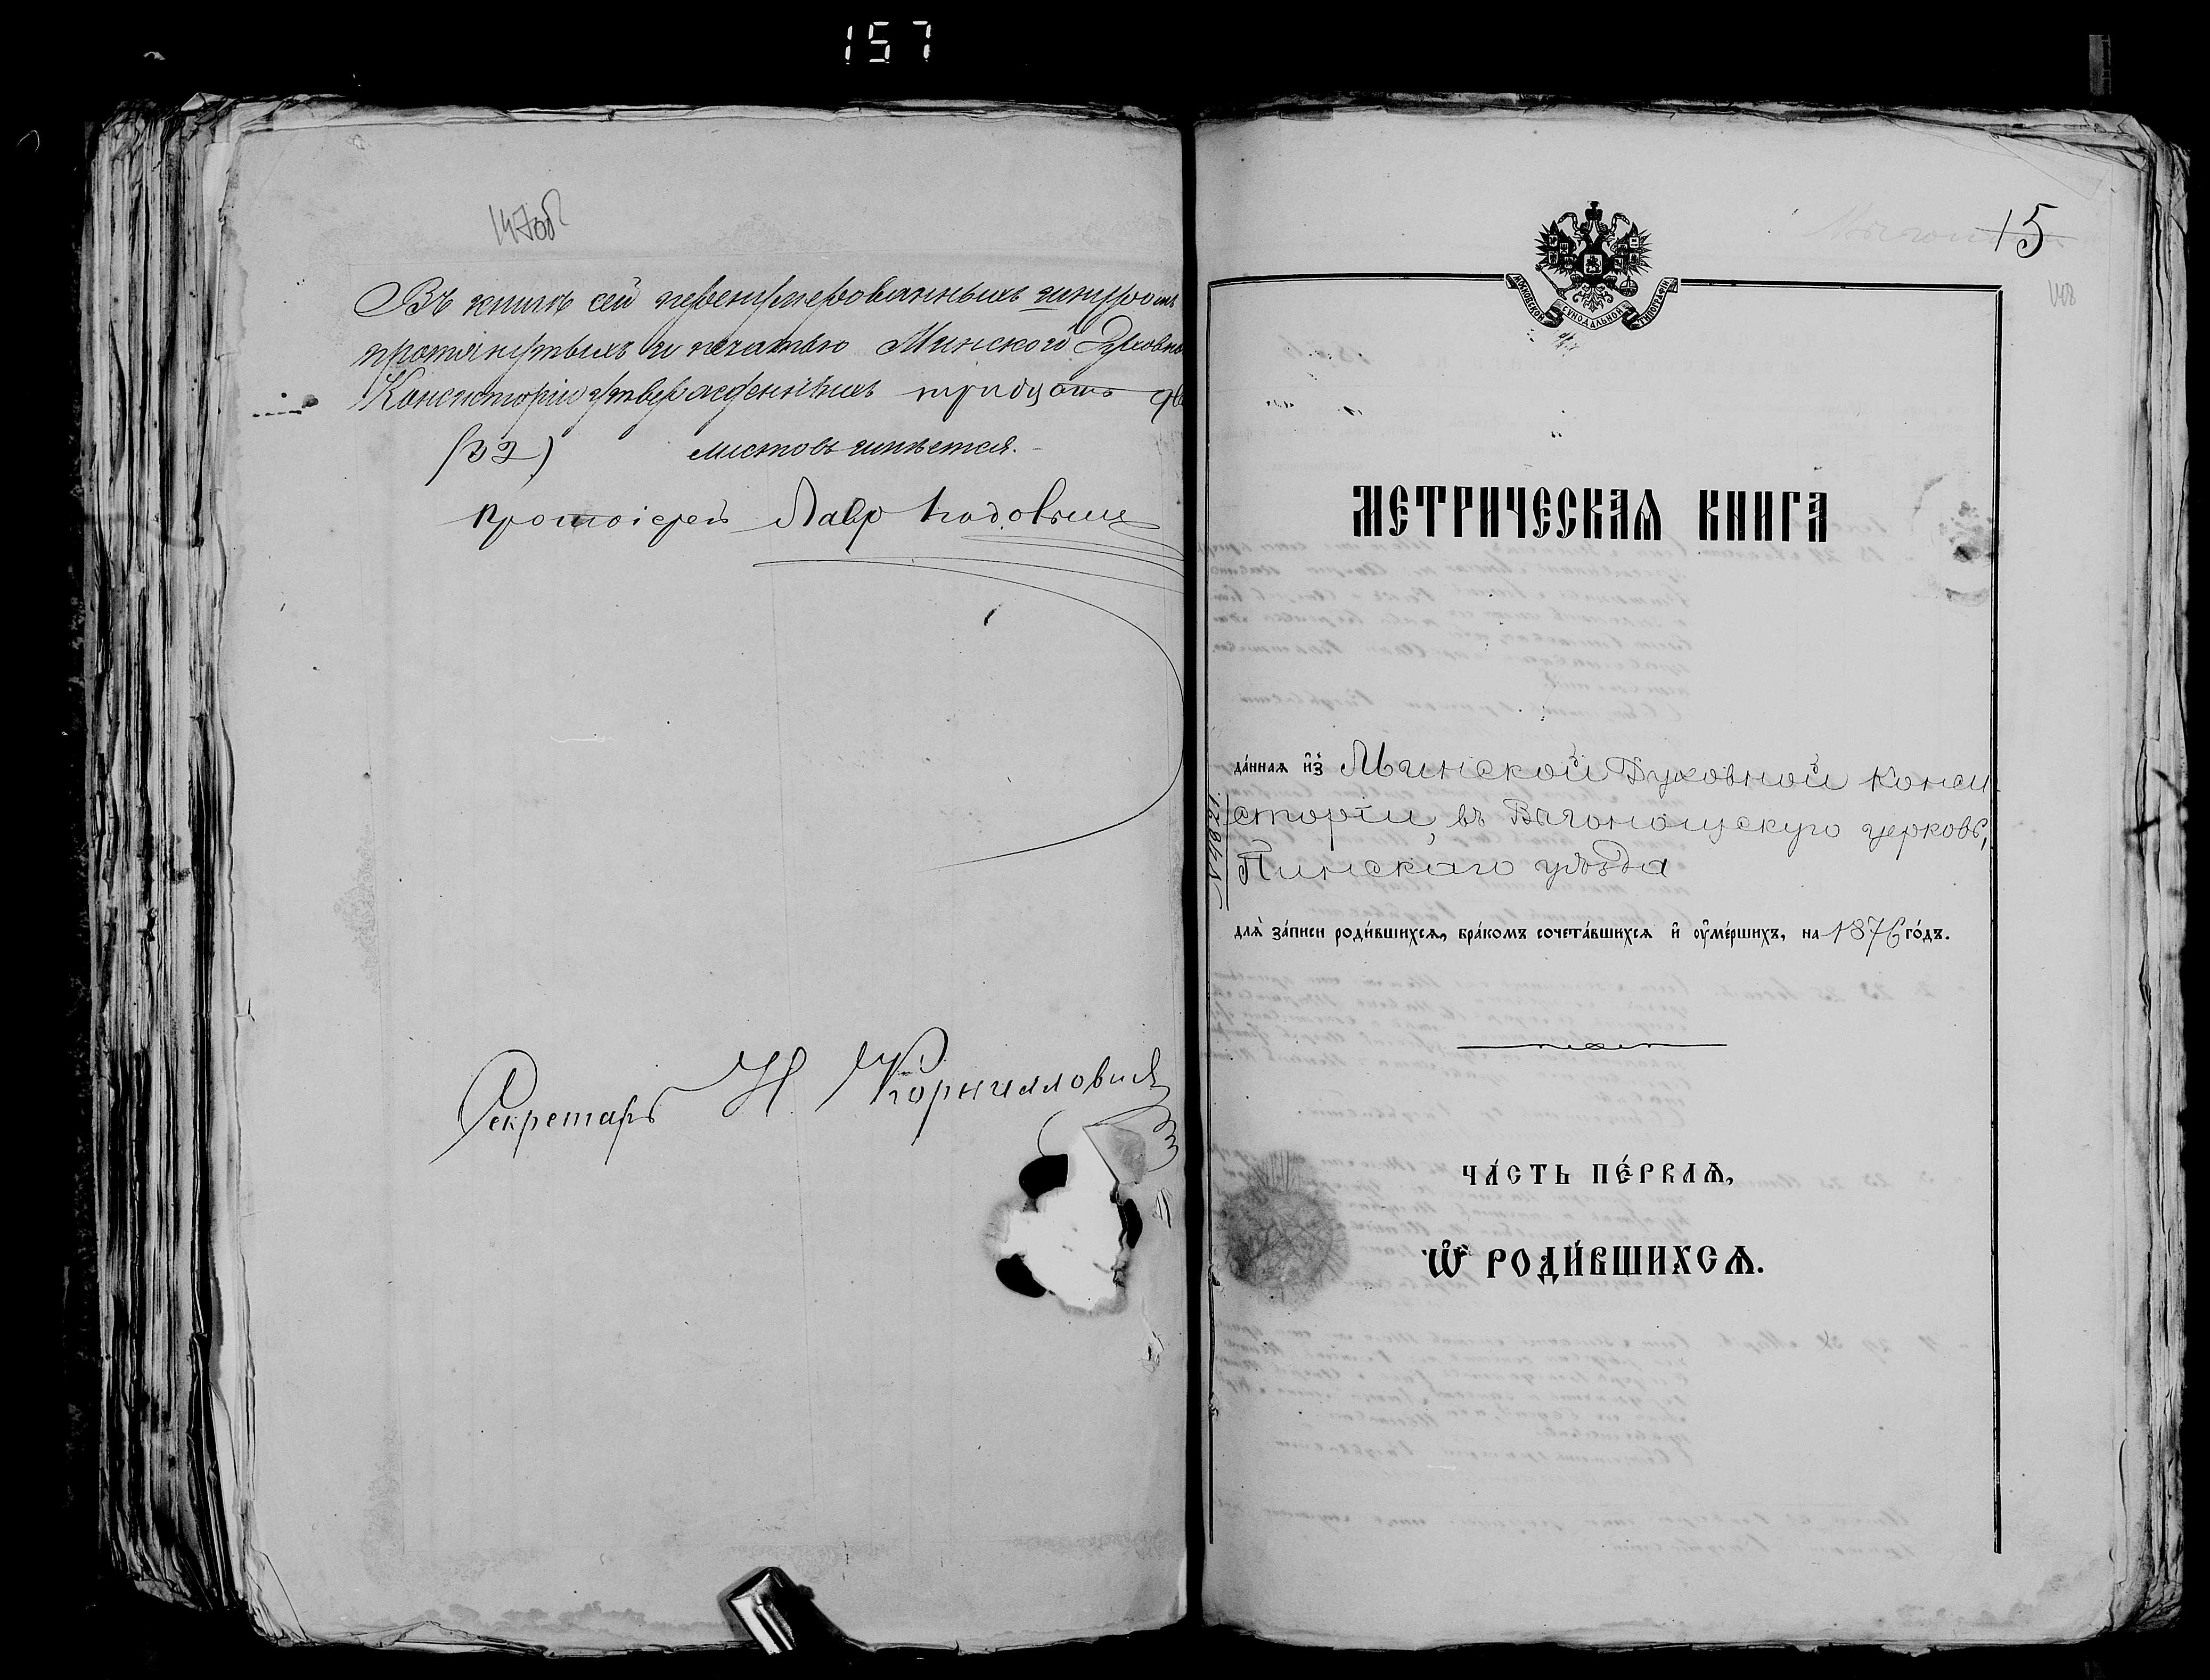 157
147об
Въ книгѣ сей перенумерованныхъ шнуромъ
протянутыхъ и печатью Минской Духовно
Консисторіи утвержденныхъ тридцать два
(32) листовъ имѣется.
Протоіерей Лавръ
Секретарь Н. Корниловичъ
15
148
МОСКОВСКОЙ СѴНОДАЛЬНОЙ ТИПОГРАФІИ
МЕТРИЧЕСКАЯ КНИГА
да́ннаѧ и҆з̾ Минской Духовной Конси-
сторіи, въ Выгонощскую церковь,
Пинскаго уѣзда
№ 4821.
длѧ̀ за́писи роди́вшихсѧ, бра́комъ сочета́вшихсѧ и҆ ᲂу҆ме́ршихъ, на 1876 го́дъ.
ЧА́СТЬ ПЕ́РВАѦ,
Ѽ РОДИ́ВШИХСѦ.